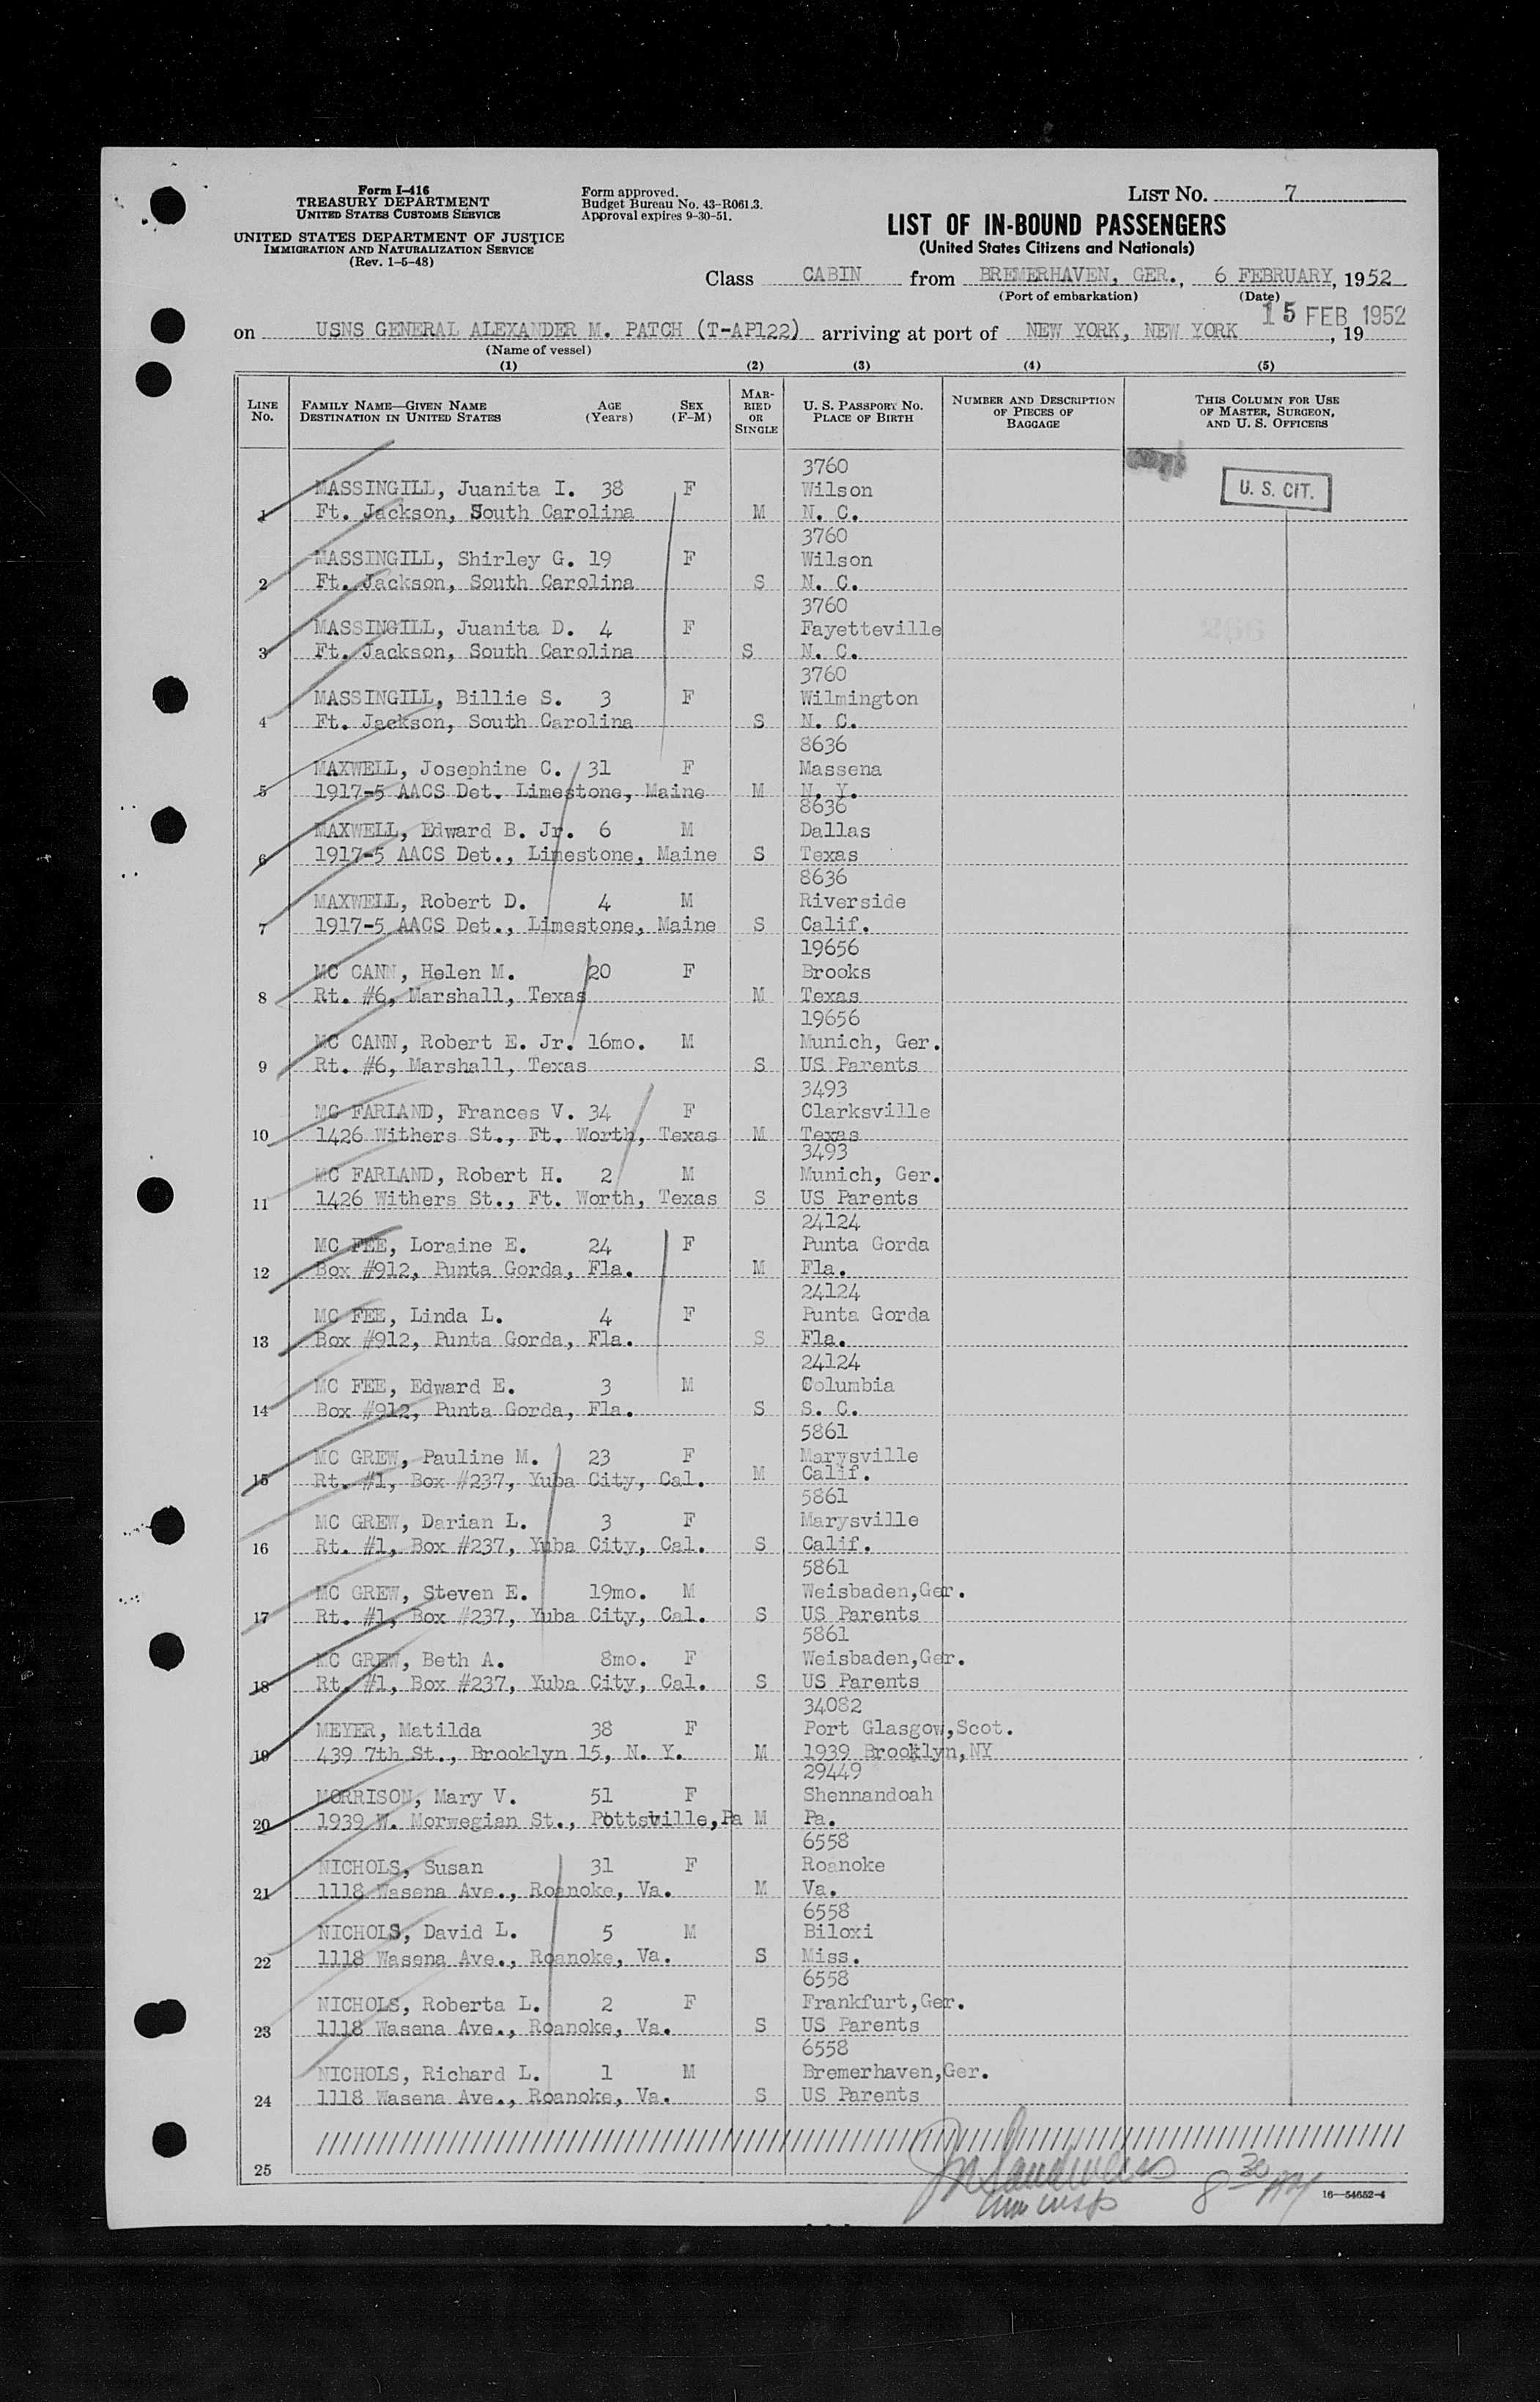 Form I-416
TREASURY DEPARTMENT
UNITED STATES CUSTOMS SERVICE
UNITED STATES DEPARTMENT OF JUSTICE
IMMIGRATION AND NATURALIZATION SERVICE
(Rev. 1-5-48)
Form approved.
Budget Bureau No. 43-R061.3.
Approval expires 9-30-51.
LIST NO. 7
LIST OF IN-BOUND PASSENGERS
(United States Citizens and Nationals)
Class CABIN from BREMERHAVEN, GER., 6 FEBRUARY, 1952
(Port of embarkation) (Date)
15 FEB 1952
on USNS GENERAL ALEXANDER M. PATCH (T-AP122) arriving at port of NEW YORK, NEW YORK, 19
(Name of vessel)
(1) (2) (3) (4) (5)
LINE NO.
FAMILY NAME—GIVEN NAME
DESTINATION IN UNITED STATES
AGE (Years)
SEX (F-M)
MARRIED OR SINGLE
U. S. PASSPORT NO.
PLACE OF BIRTH
NUMBER AND DESCRIPTION OF PIECES OF BAGGAGE
THIS COLUMN FOR USE OF MASTER, SURGEON, AND U. S. OFFICERS
U. S. CIT.
3760
MASSINGILL, Juanita I. 38 F Wilson
1 Ft. Jackson, South Carolina M N. C.
3760
MASSINGILL, Shirley G. 19 F Wilson
2 Ft. Jackson, South Carolina S N. C.
3760
MASSINGILL, Juanita D. 4 F Fayetteville
3 Ft. Jackson, South Carolina S N. C.
266
3760
MASSINGILL, Billie S. 3 F Wilmington
4 Ft. Jackson, South Carolina S N. C.
8636
MAXWELL, Josephine C. 31 F Massena
5 1917-5 AACS Det. Limestone, Maine M N. Y.
8636
MAXWELL, Edward B. Jr. 6 M Dallas
6 1917-5 AACS Det., Limestone, Maine S Texas
8636
MAXWELL, Robert D. 4 M Riverside
7 1917-5 AACS Det., Limestone, Maine S Calif.
19656
MC CANN, Helen M. 20 F Brooks
8 Rt. #6, Marshall, Texas M Texas
19656
MC CANN, Robert E. Jr. 16mo. M Munich, Ger.
9 Rt. #6, Marshall, Texas S US Parents
3493
MC FARLAND, Frances V. 34 F Clarksville
10 1426 Withers St., Ft. Worth, Texas M Texas
3493
MC FARLAND, Robert H. 2 M Munich, Ger.
11 1426 Withers St., Ft. Worth, Texas S US Parents
24124
MC FEE, Loraine E. 24 F Punta Gorda
12 Box #912, Punta Gorda, Fla. M Fla.
24124
MC FEE, Linda L. 4 F Punta Gorda
13 Box #912, Punta Gorda, Fla. S Fla.
24124
MC FEE, Edward E. 3 M Columbia
14 Box #912, Punta Gorda, Fla. S S. C.
5861
MC GREW, Pauline M. 23 F Marysville
15 Rt. #1, Box #237, Yuba City, Cal. M Calif.
5861
MC GREW, Darian L. 3 F Marysville
16 Rt. #1, Box #237, Yuba City, Cal. S Calif.
5861
MC GREW, Steven E. 19mo. M Weisbaden,Ger.
17 Rt. #1, Box #237, Yuba City, Cal. S US Parents
5861
MC GREW, Beth A. 8mo. F Weisbaden,Ger.
18 Rt. #1, Box #237, Yuba City, Cal. S US Parents
34082
MEYER, Matilda 38 F Port Glasgow,Scot.
19 439 7th St., Brooklyn 15, N. Y. M 1939 Brooklyn,NY
29449
MORRISON, Mary V. 51 F Shennandoah
20 1939 W. Morwegian St., Pottsville,Pa M Pa.
6558
NICHOLS, Susan 31 F Roanoke
21 1118 Wasena Ave., Roanoke, Va. M Va.
6558
NICHOLS, David L. 5 M Biloxi
22 1118 Wasena Ave., Roanoke, Va. S Miss.
6558
NICHOLS, Roberta L. 2 F Frankfurt,Ger.
23 1118 Wasena Ave., Roanoke, Va. S US Parents
6558
NICHOLS, Richard L. 1 M Bremerhaven,Ger.
24 1118 Wasena Ave., Roanoke, Va. S US Parents
25
8 30 AM
16-54652-4